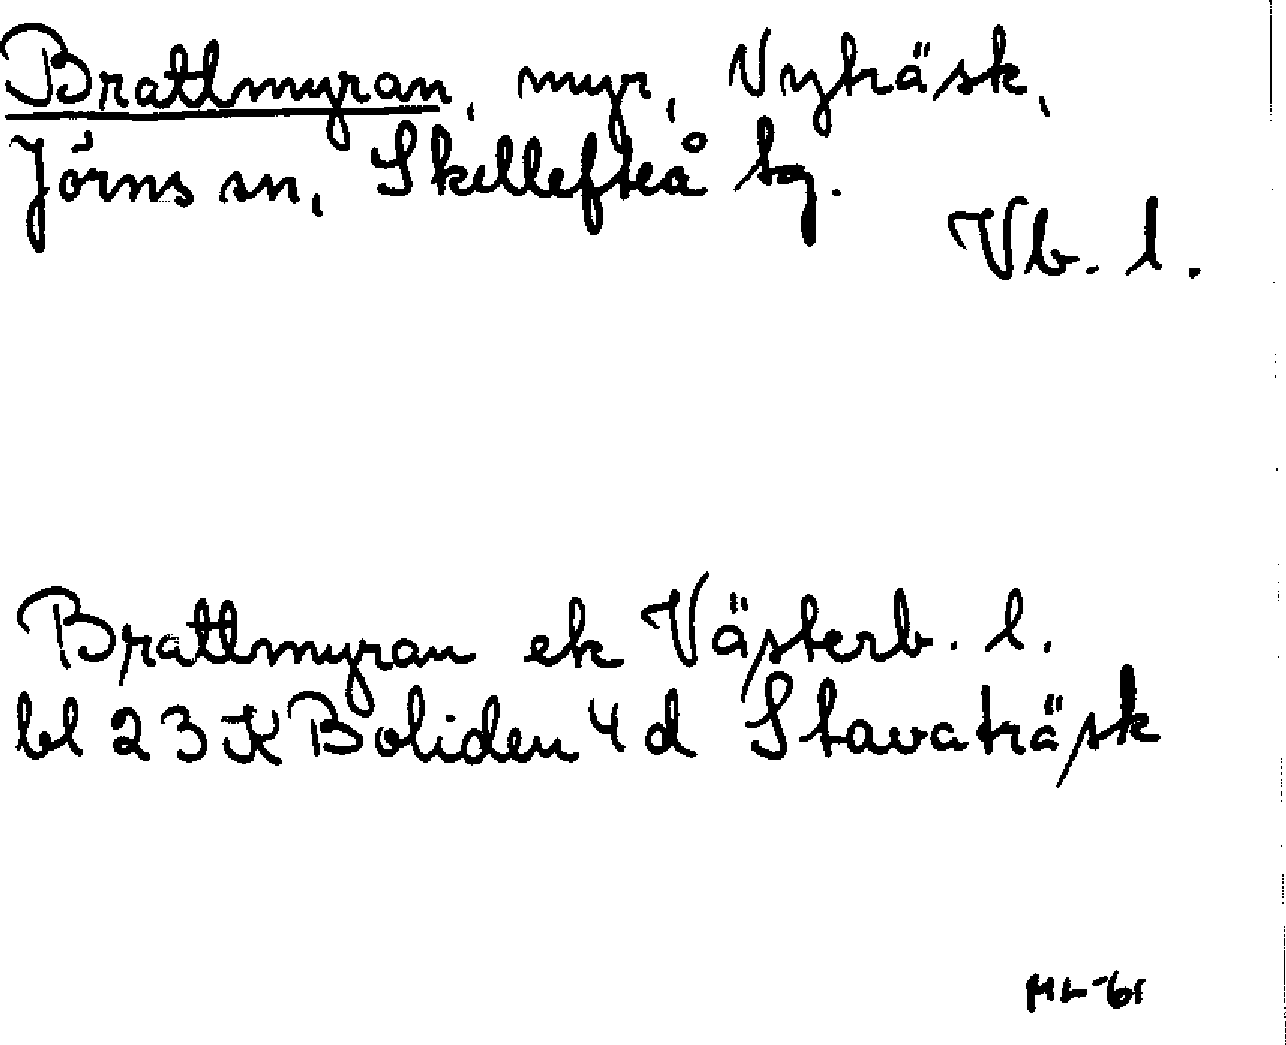 Brattmyran, myr, Vyträsk,
Jörns sn, Skellefteå tg.
Vb. l.
Brattmyran ek Västerb. l.
bl 23K Boliden 4d Stavaträsk
ML-61